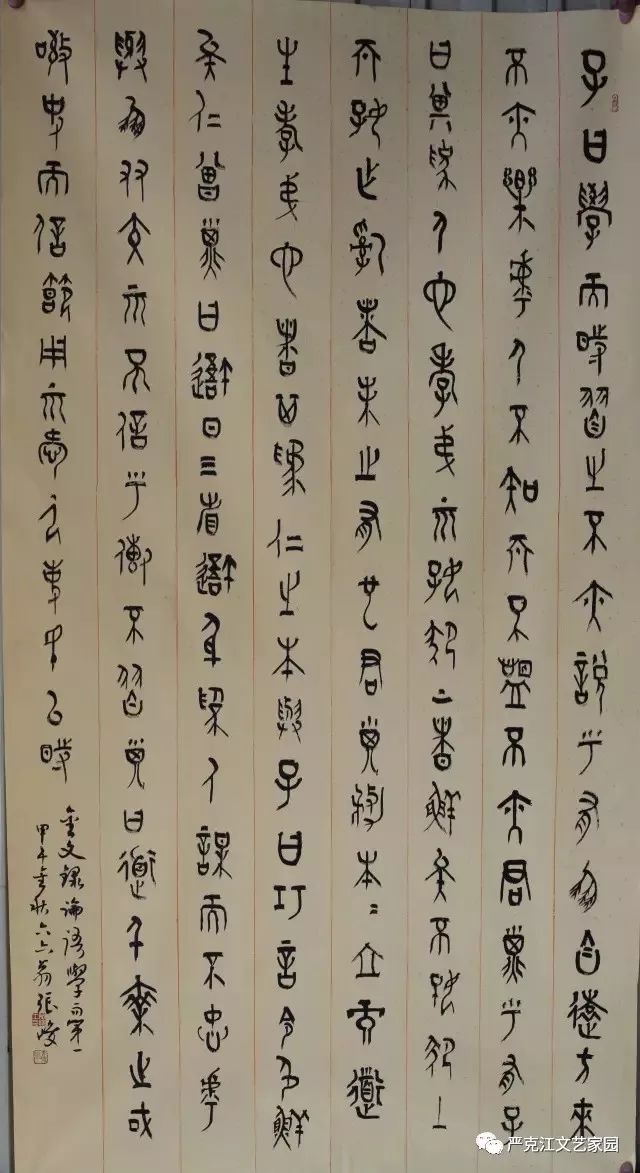 子曰學而時習之不亦說乎有朋自遠方來
不亦樂乎人不知而不慍不亦君子乎有子
曰其為人也孝弟而好犯上者鮮矣不好犯上
而好作亂者未之有也君子務本〻立而道
生孝弟也者其為仁之本與子曰巧言令色鮮
矣仁曾子曰吾日三省吾身為人謀而不忠乎
與朋友交而不信乎傳不習子曰道千乘之或
敬事而信節用而愛人使民以時
金文錄論語學而第一
甲午金秋六六翁張峻
严克江文艺家园